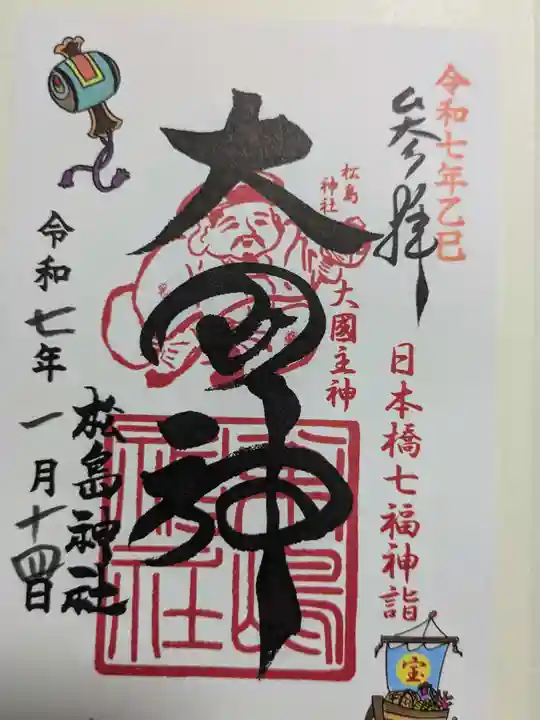 令和七年乙巳
参拝
日本橋七福神詣
松島
神社
大國主神
大黒神
松島神社
令和七年一月十四日
宝